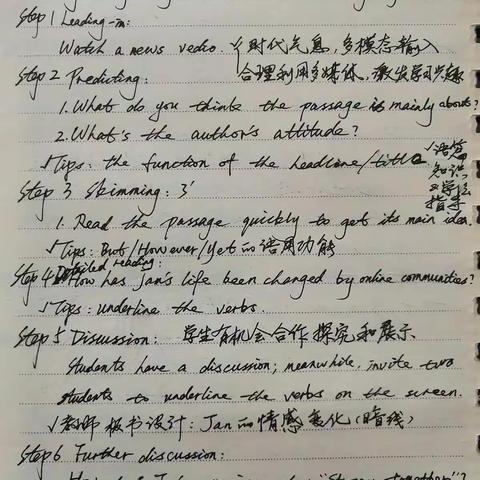 Step 1 Leading-in:
Watch a news vedio. √时代气息，多模态输入
合理利用多媒体，激发学习兴趣
Step 2 Predicting:
1. What do you think the passage is mainly about?
2. What's the author's attitude?
√Tips: the function of the headline/title
√语篇
知识
学法
指导
Step 3 Skimming: 3'
1. Read the passage quickly to get its main idea.
√Tips: But/However/Yet的语用功能
Step 4 Detailed reading:
How has Jan's life been changed by online communities?
√Tips: underline the verbs.
Step 5 Disussion: 学生有机会合作探究和展示
Students have a discussion; meanwhile, invite two
students to underline the verbs on the screen.
√教师板书设计: Jan的情感变化(暗线)
Step 6 Further discussion: